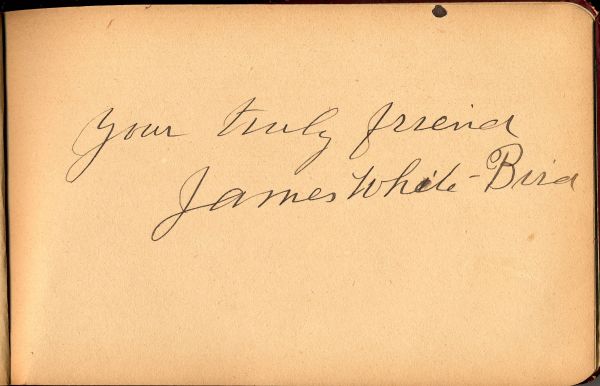 your truly friend
James White-Bird